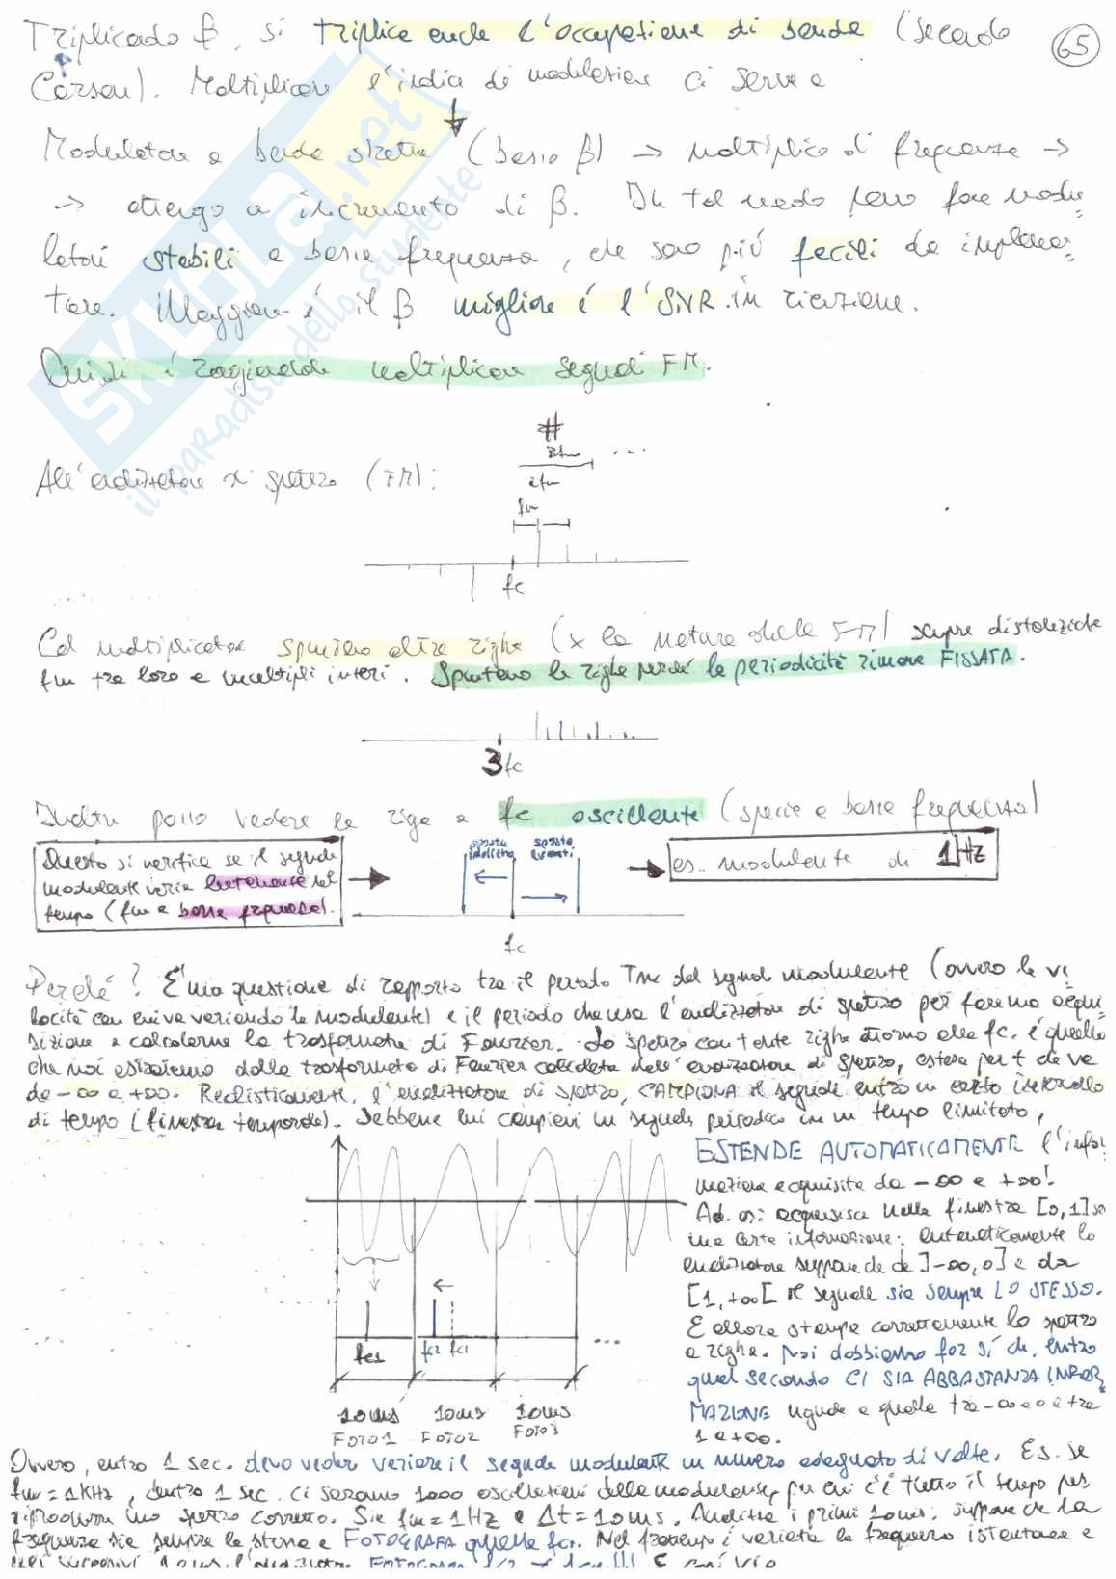 Triplicado β, si triplica anche l'occupazione di banda (secondo
65
Carson). Moltiplicare l'indice di modulazione ci serve a
Modulatore a banda stretta (basso β) → moltiplico di frequenza →
→ ottengo un incremento di β. In tal modo posso fare modu-
latori stabili a bassa frequenza, che sono più facili da implemen-
tare. Maggiore è il β migliore è l'SNR in ricezione.
Quindi è ragionevole moltiplicare segnali FM.
SKUOLA.net
il paradiso dello studente
#
3fm ...
2fm
fm
All'analizzatore di spettro (FM):
fc
Col moltiplicatore spuntano altre righe (x la natura della FM) sempre distanziate
fm tra loro e multipli interi. Spuntano le righe perché la periodicità rimane FISSATA.
3fc
Inoltre posso vedere la riga a fc oscillante (specie a bassa frequenza)
Questo si verifica se il segnale
modulante varia lentamente nel
tempo (fm a bassa frequenza).
es. modulante di 1Hz
fc
Perché? È una questione di rapporto tra il periodo Tm del segnale modulante (ovvero la ve-
locità con cui va variando la modulante) e il periodo che usa l'analizzatore di spettro per fare una acqui-
sizione e calcolarne la trasformata di Fourier. Lo spettro con tante righe attorno alla fc è quello
che noi estraiamo dalla trasformata di Fourier calcolata dall'analizzatore di spettro, estesa per t che va
da -∞ a +∞. Realisticamente, l'analizzatore di spettro, CAMPIONA il segnale entro un certo intervallo
di tempo (finestra temporale). Sebbene lui campioni un segnale periodico in un tempo limitato,
ESTENDE AUTOMATICAMENTE l'infor-
mazione acquisita da -∞ a +∞!
Ad es: acquisisce nella finestra [0,1] s
una certa informazione: automaticamente lo
analizzatore suppone che da ]-∞,0] e da
[1,+∞[ il segnale sia sempre LO STESSO.
E allora stampa correttamente lo spettro
a righe. Noi dobbiamo far sì che, entro
quel secondo CI SIA ABBASTANZA INFOR-
MAZIONE uguale a quella tra -∞ e 0 e tra
1 e +∞.
fc1 fc2 fc1 ...
10ms 10ms 10ms
FOTO1 FOTO2 FOTO3
Ovvero, entro 1 sec. devo veder variare il segnale modulante un numero adeguato di volte. Es. se
fm = 1KHz, dentro 1 sec. ci saranno 1000 oscillazioni della modulante, per cui c'è tutto il tempo per
riprodurre uno spettro corretto. Sia fm = 1Hz e Δt = 10ms. Analizza i primi 10ms: suppone che la
frequenza sia sempre la stessa e FOTOGRAFA quella fc1. Nel frattempo è variata la frequenza istantanea e